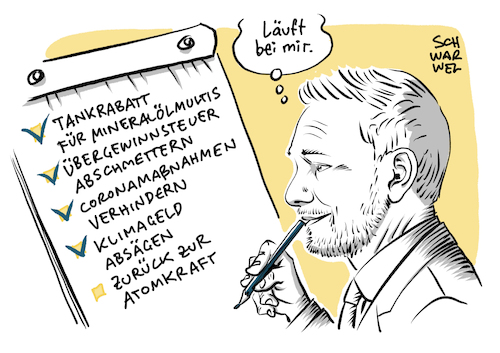 Läuft
bei mir.
SCH
WAR
WEL
TANKRABATT
FÜR MINERALÖLMULTIS
ÜBERGEWINNSTEUER
ABSCHMETTERN
CORONAMAẞNAHMEN
VERHINDERN
KLIMAGELD
ABSÄGEN
ZURÜCK ZUR
ATOMKRAFT